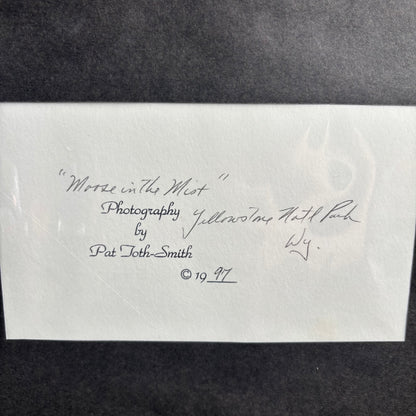 "Moose in The Mist"
Photography Yellowstone Nat'l Park
by Wy.
Pat Toth-Smith
© 1997